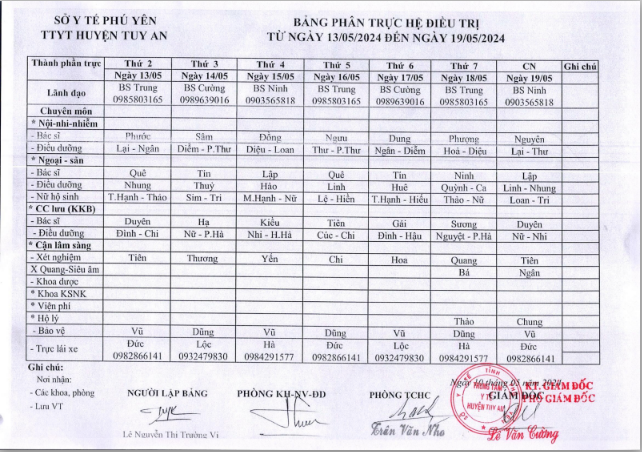 SỞ Y TẾ PHÚ YÊN
TTYT HUYỆN TUY AN
BẢNG PHÂN TRỰC HỆ ĐIỀU TRỊ
TỪ NGÀY 13/05/2024 ĐẾN NGÀY 19/05/2024
Thành phần trực Thứ 2 Thứ 3 Thứ 4 Thứ 5 Thứ 6 Thứ 7 CN Ghi chú
Ngày 13/05 Ngày 14/05 Ngày 15/05 Ngày 16/05 Ngày 17/05 Ngày 18/05 Ngày 19/05
Lãnh đạo BS Trung BS Cường BS Ninh BS Trung BS Cường BS Trung BS Ninh
0985803165 0989639016 0903565818 0985803165 0989639016 0985803165 0903565818
Chuyên môn
* Nội-nhi-nhiễm
- Bác sĩ Phước Sâm Đông Ngưu Dung Phượng Nguyên
- Điều dưỡng Lại - Ngân Diễm - P.Thư Diệu - Loan Thư - P.Thư Ngân - Diễm Hoà - Diệu Lại - Thư
* Ngoại - sản
- Bác sĩ Quê Tín Lập Quê Tín Ninh Lập
- Điều dưỡng Nhung Thuý Hảo Linh Huê Quỳnh - Ca Linh - Nhung
- Nữ hộ sinh T.Hạnh - Thảo Sim - Tri M.Hạnh - Nữ Lệ - Hiền T.Hạnh - Hiếu Thảo - Nữ Loan - Tri
* CC lưu (KKB)
- Bác sĩ Duyên Hạ Kiều Tiên Gái Sương Duyên
- Điều dưỡng Đình - Chi Nữ - P.Hà Nhi - H.Hà Cúc - Chi Đình - Hậu Nguyệt - P.Hà Nữ - Nhi
* Cận lâm sàng
- Xét nghiệm Tiên Thương Yến Chi Hoa Quang Tiên
X Quang-Siêu âm Bá Ngân
- Khoa dược
* Khoa KSNK
* Viện phí
* Hộ lý Thảo Chung
- Bảo vệ Vũ Dũng Vũ Dũng Vũ Dũng Vũ
- Trực lái xe Đức Lộc Hà Đức Lộc Hà Đức
0982866141 0932479830 0984291577 0982866141 0932479830 0984291577 0982866141
Ghi chú:
Nơi nhận:
- Các khoa, phòng
- Lưu VT
Ngày 10 tháng 05 năm 2024
NGƯỜI LẬP BẢNG PHÒNG KH-NV-ĐD PHÒNG TCHC GIÁM ĐỐC
KT. GIÁM ĐỐC
PHÓ GIÁM ĐỐC
TRUNG TÂM
Y TẾ
HUYỆN TUY AN
Lê Nguyễn Thị Trường Vi
Trần Văn Nho
Lê Văn Cường